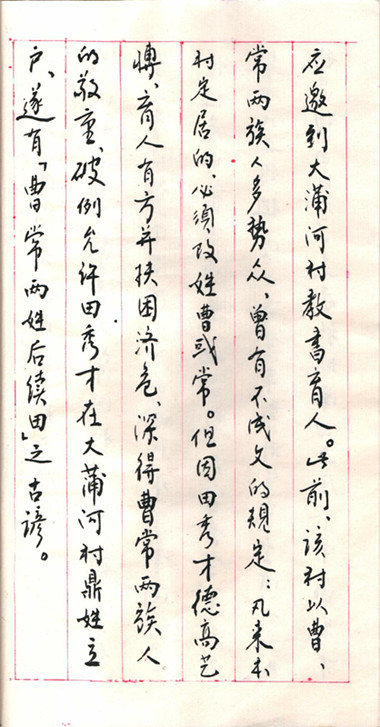 应邀到大蒲河村教书育人。此前，该村以曹、
常两族人多势众，曾有不成文的规定：凡来本
村定居的，必须改姓曹或常。但因田秀才德高艺
博、育人有方并扶困济危、深得曹常两族人
的敬重，破例允许田秀才在大蒲河村鼎姓立
户、遂有「曹常两姓后续田」之古谚。